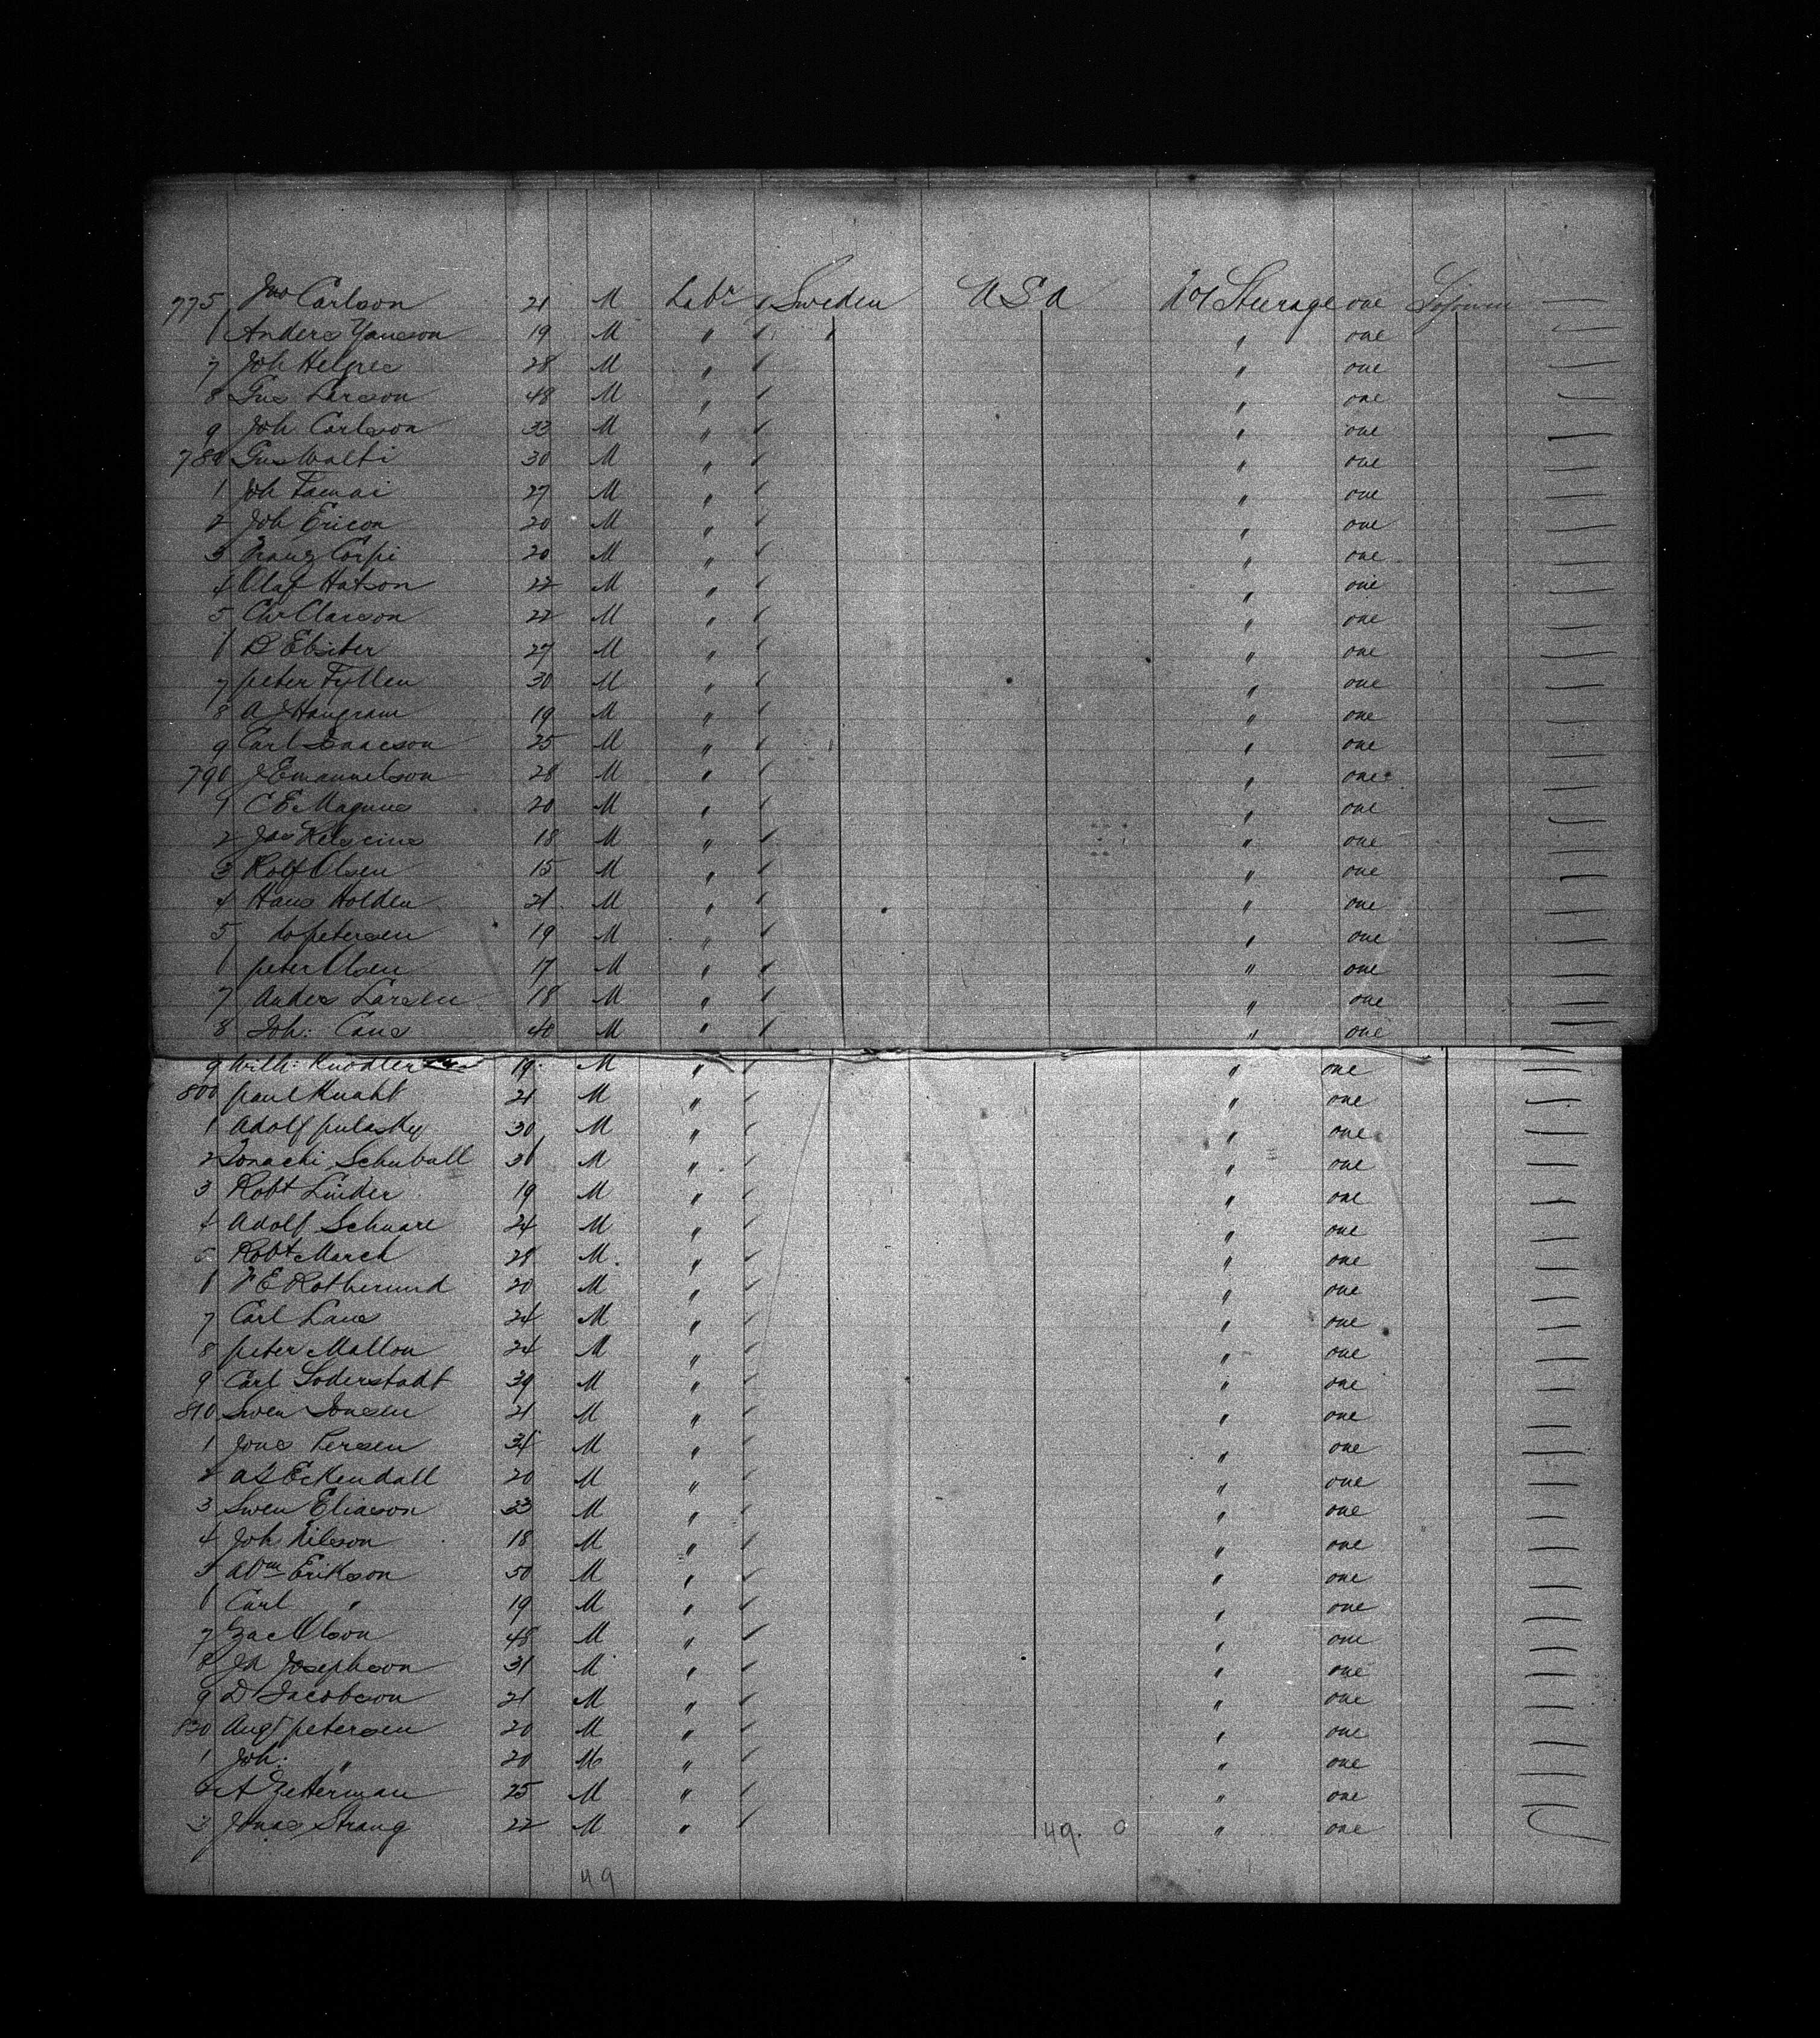 775 Jno Carlson 21 M Labr Sweden U S A Steerage one Sojourn
6 Anders Yanson 19 M " " one
7 Joh 28 M " " one
8 Gus Larson 48 M " " one
9 Joh. Carlson 33 M " " one
780 Gus Walti 30 M " " one
1 Joh 27 M " " one
2 Joh Ericon 20 M " " one
3 Franz Corpi 20 M " " one
4 Olaf Hatson 22 M " " one
5 Chr Clason 22 M " " one
6 B 27 M " " one
7 peter Fyllen 30 M " " one
8 A J Hangram 19 M " " one
9 Carl Isaacson 25 M " " one
790 J Emanuelson 28 M " " one
1 C E Magnus 20 M " " one
2 Jas 18 M " " one
3 Rolf Olsen 15 M " " one
4 Hans Holden 21 M " " one
5 do petersen 19 M " " one
6 peter Olsen 17 M " " one
7 Anders Larsen 18 M " " one
8 Joh: Cans 40 M " " one
9 Wilh: Knodler 19 M " " one
800 paul Knaht 21 M " " one
1 Adolf pulasky 30 M " " one
2 Schuball 36 M " " one
3 Robt Linder 19 M " " one
4 Adolf Schuare 24 M " " one
5 Robt March 28 M " " one
6 F E Rothermd 20 M " " one
7 Carl Lans 24 M " " one
8 peter Mallon 24 M " " one
9 Carl Soderstadt 39 M " " one
810 Swen Jonsen 21 M " " one
1 Jons Persen 34 M " " one
2 A L Eckendall 20 M " " one
3 Swen Eliason 33 M " " one
4 Joh Nilson 18 M " " one
5 Abm Erikson 50 M " " one
6 Carl " 19 M " " one
7 Zac Olson 48 M " " one
8 Jn Josephson 31 M " " one
9 D Jacobson 21 M " " one
820 Augt petersen 20 M " " one
1 Joh: " 20 M " " one
2 A Zetterman 25 M " " one
3 Jonas Strang 22 M " 49. 0 " one
49